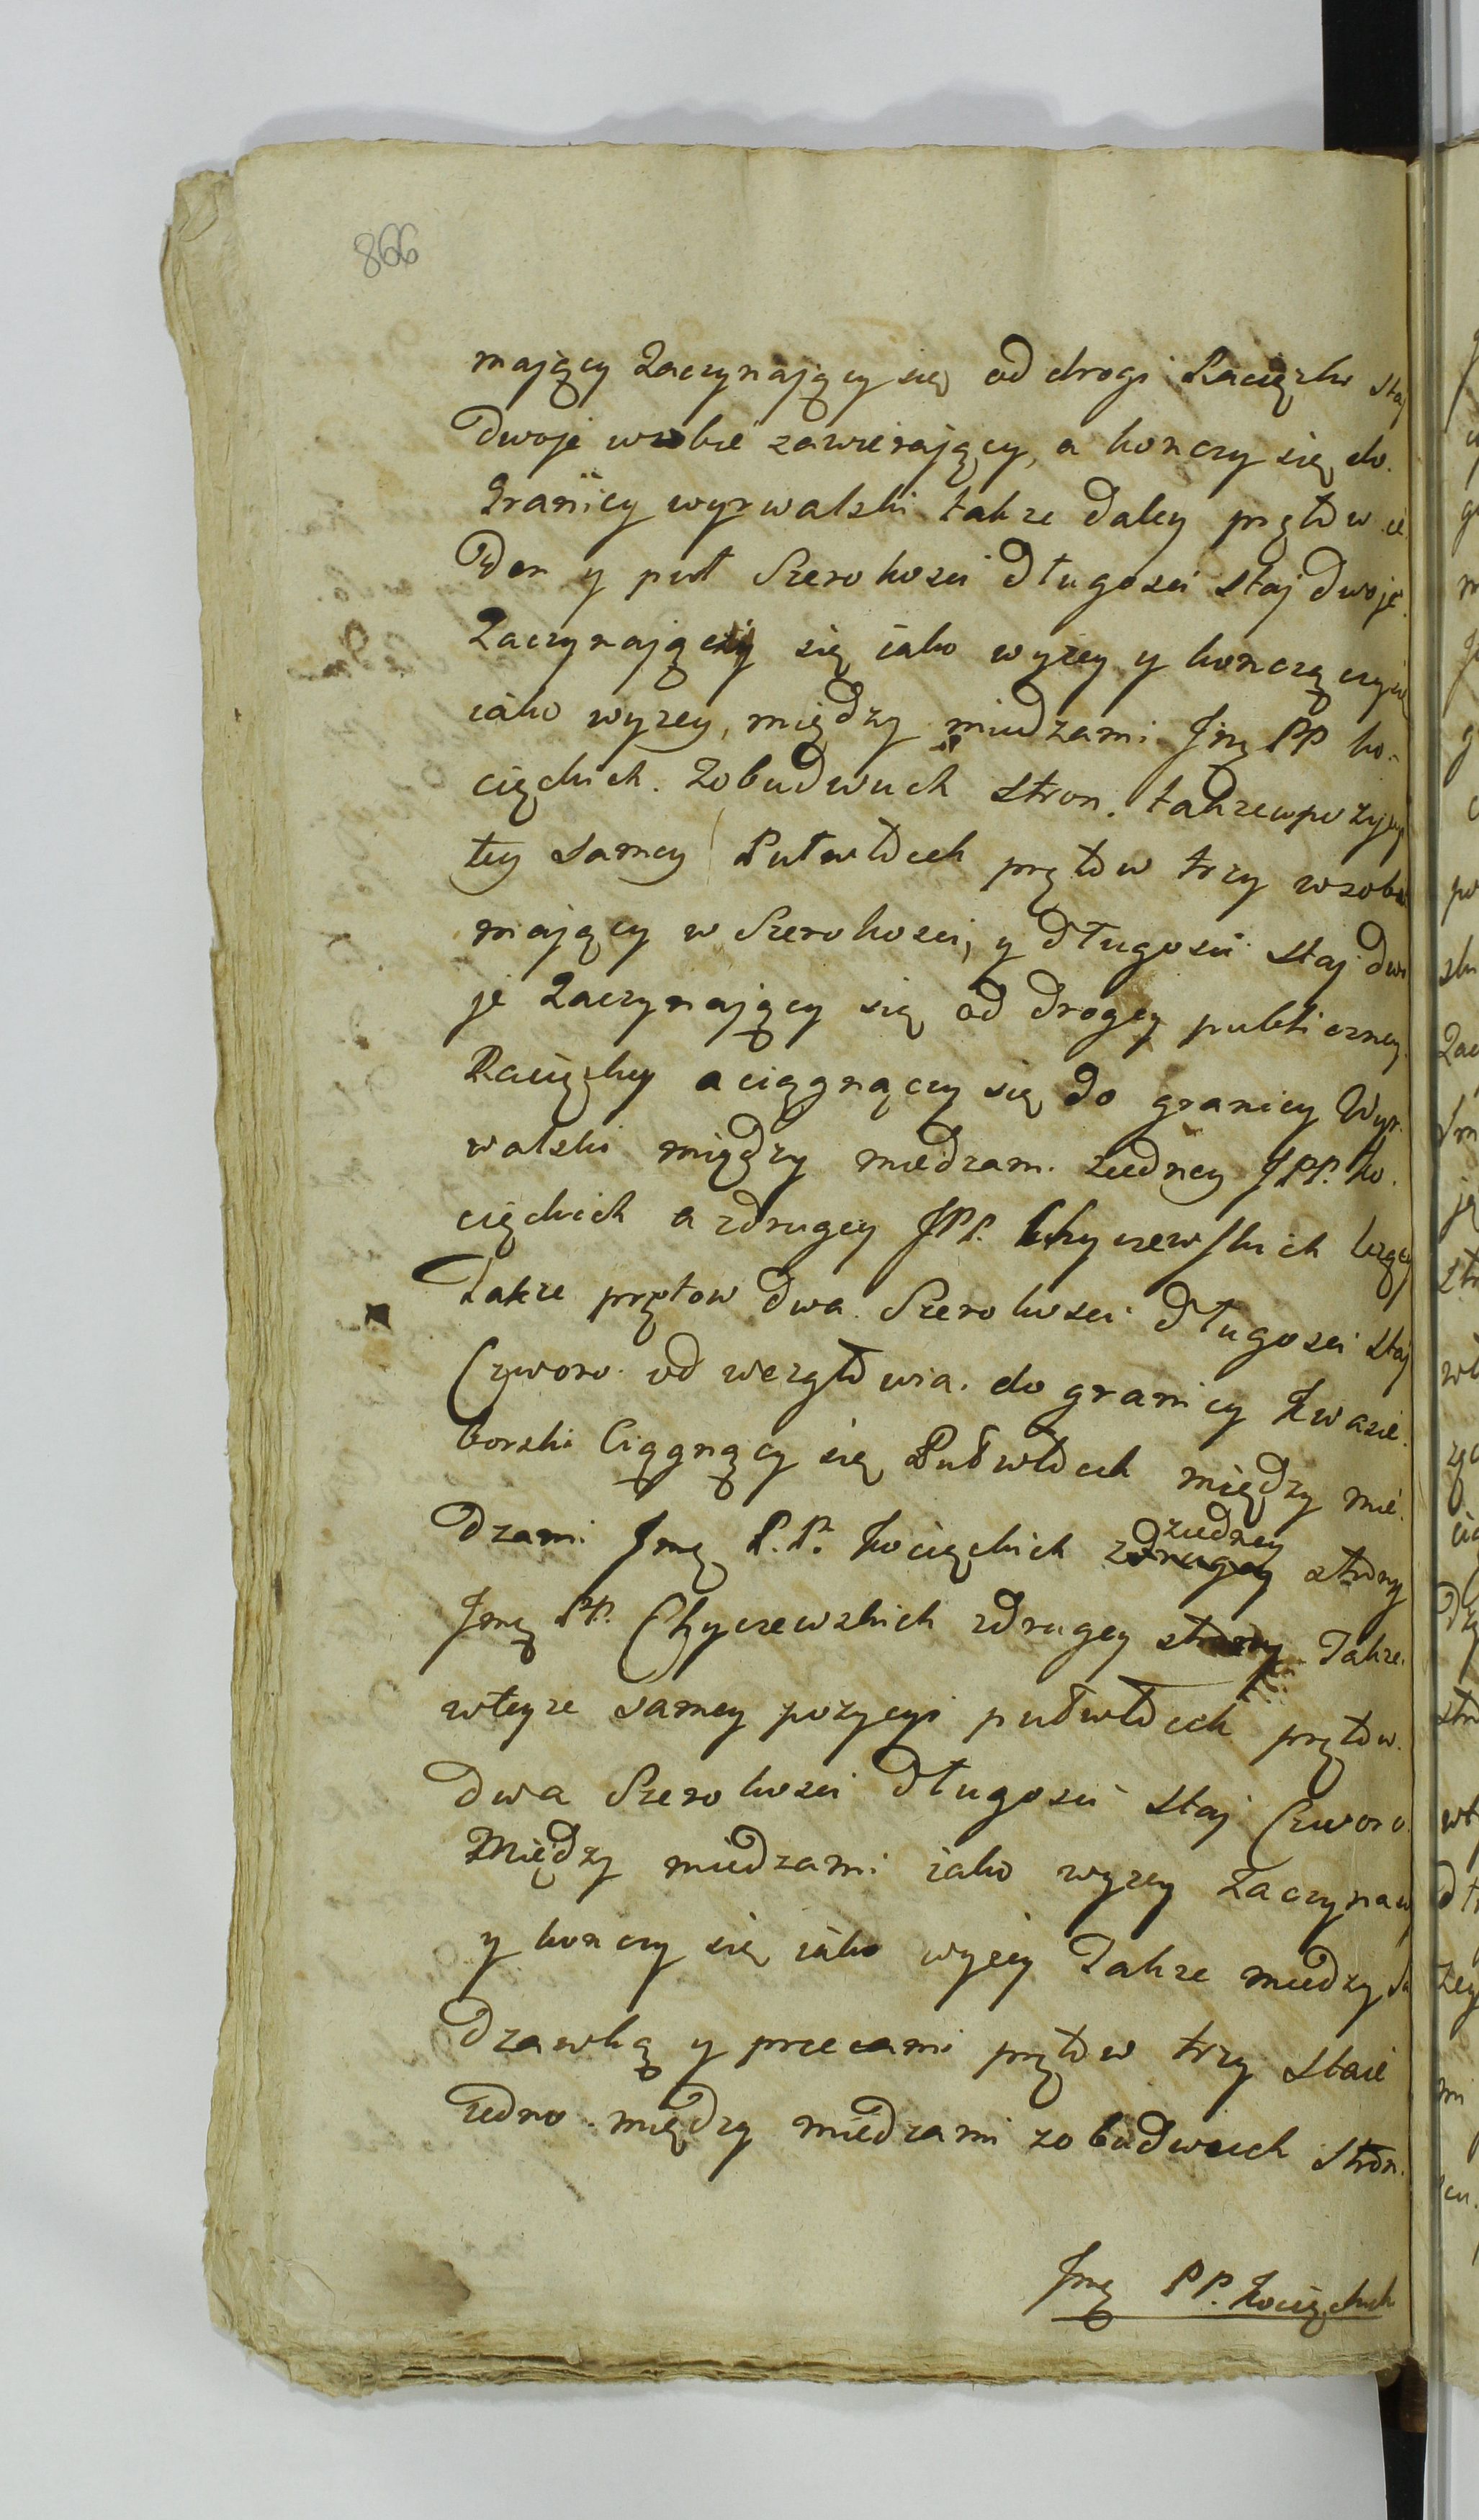 866
mający Zaczynający się od drogi Raciązkı staj
Dwoje wsobie zawierający, a konczy się do
Granicy wyrwalski takze Daley prętow ie
Den y puł Szerokosci Długosci staj Dwoje
Zaczynający się iako wyzey y konczący się
iako wyzey, między miedzami Jmę PP Ko-
cięckich. Zobudwuch stron. takze w pozycy
tey samey Pułwłoćek prętow trzy wsobie
mający w Szerokosci, y Długosci staj dwo
je Zaczynający się od Drogey publiczney
Raciązkey a ciągnączy się Do granicy Wyr-
walski między miedzam. ziedney JPP. Ko-
cięckich a zdrugey JPP. Chyczewskich lezący
Takze prętow Dwa Szerokosci Długosci staj
Czworo od wezgłowia do granicy Kwasie
borski Ciągnący się Pułwłoćek między mie
Dzami Jmę P.P. Kocięckich zdrugey ziedney strony
Jmę PP. Chyczewskich zdrugey strony Takze
wteyze samey pozycyi pułwłoćek prętow
Dwa Szerokosci Długosci staj Czworo
Między miedzami iako wyzey Zaczyna się
y konczy się iako wyzey Takze miedzy Sa
Dzawką y przecami prętow trzy staie
iedno między miedzami zobudwuch stron
Jmę PP. Kocięckich